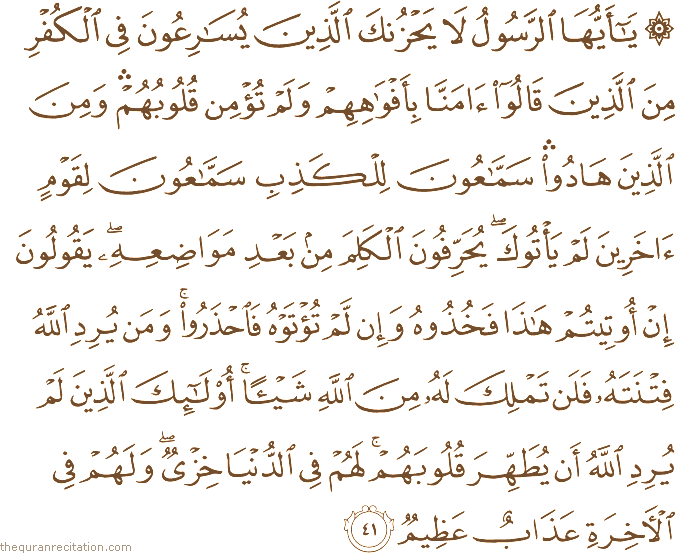 ۞ يَـٰٓأَيُّهَا ٱلرَّسُولُ لَا يَحْزُنكَ ٱلَّذِينَ يُسَـٰرِعُونَ فِى ٱلْكُفْرِ
مِنَ ٱلَّذِينَ قَالُوٓا۟ ءَامَنَّا بِأَفْوَٰهِهِمْ وَلَمْ تُؤْمِن قُلُوبُهُمْ ۛ وَمِنَ
ٱلَّذِينَ هَادُوا۟ ۛ سَمَّـٰعُونَ لِلْكَذِبِ سَمَّـٰعُونَ لِقَوْمٍ
ءَاخَرِينَ لَمْ يَأْتُوكَ ۖ يُحَرِّفُونَ ٱلْكَلِمَ مِنۢ بَعْدِ مَوَاضِعِهِۦ ۖ يَقُولُونَ
إِنْ أُوتِيتُمْ هَـٰذَا فَخُذُوهُ وَإِن لَّمْ تُؤْتَوْهُ فَٱحْذَرُوا۟ ۚ وَمَن يُرِدِ ٱللَّهُ
فِتْنَتَهُۥ فَلَن تَمْلِكَ لَهُۥ مِنَ ٱللَّهِ شَيْـًٔا ۚ أُو۟لَـٰٓئِكَ ٱلَّذِينَ لَمْ
يُرِدِ ٱللَّهُ أَن يُطَهِّرَ قُلُوبَهُمْ ۚ لَهُمْ فِى ٱلدُّنْيَا خِزْىٌ ۖ وَلَهُمْ فِى
ٱلْـَٔاخِرَةِ عَذَابٌ عَظِيمٌ ٤١
thequranrecitation.com